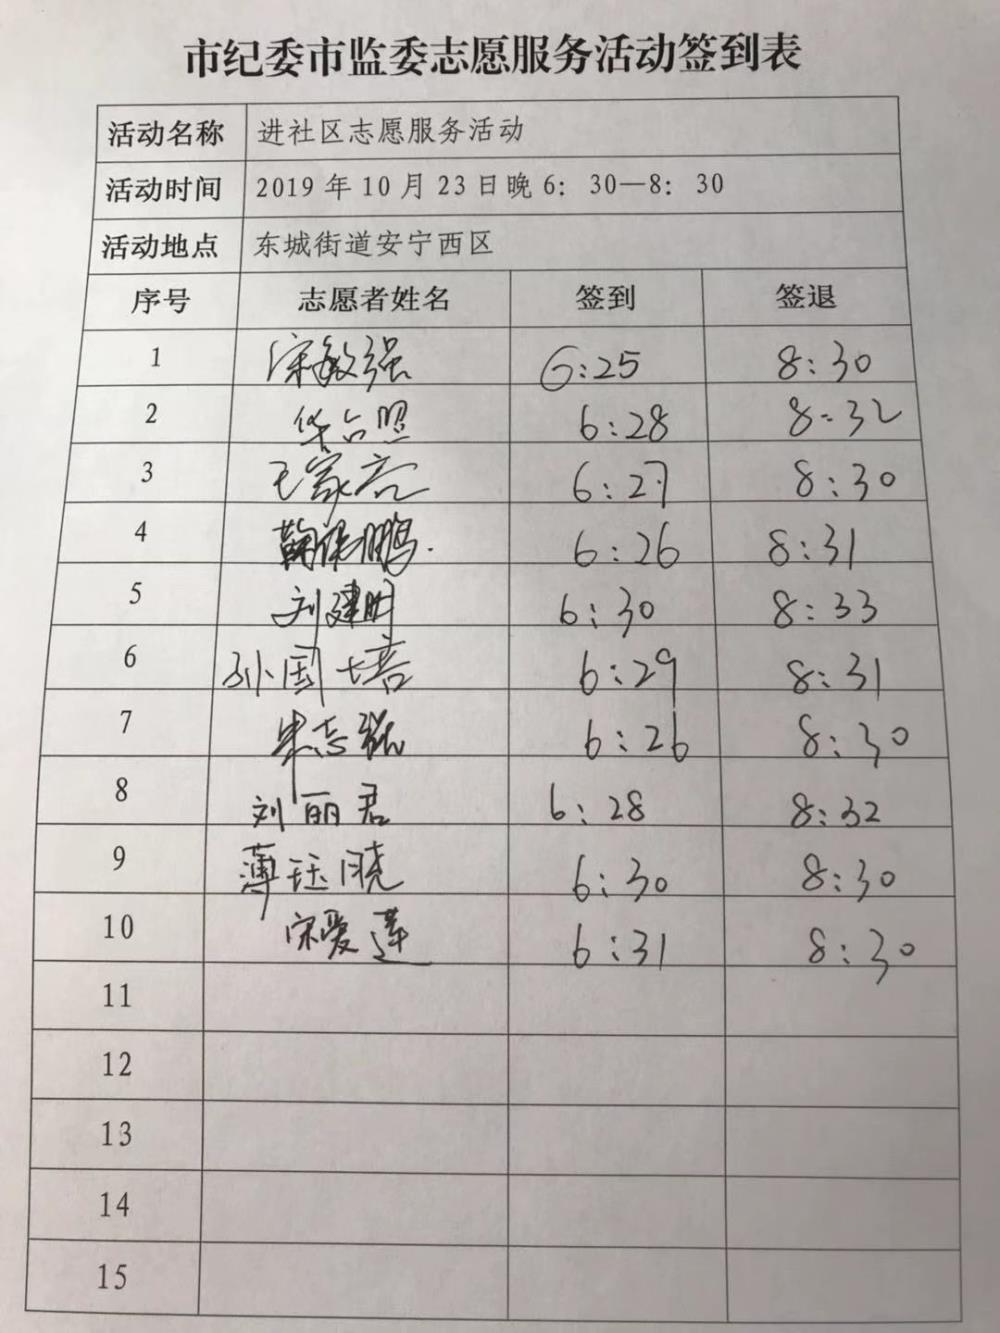 市纪委市监委志愿服务活动签到表
活动名称 进社区志愿服务活动
活动时间 2019年10月23日晚6:30—8:30
活动地点 东城街道安宁西区
序号 志愿者姓名 签到 签退
1 宋敏强 6:25 8:30
2 华台照 6:28 8:32
3 王家亮 6:27 8:30
4 鞠保鹏 6:26 8:31
5 刘建明 6:30 8:33
6 孙国培 6:29 8:31
7 志强 6:26 8:30
8 刘丽君 6:28 8:32
9 薄珏晓 6:30 8:30
10 宋爱莲 6:31 8:30
11
12
13
14
15